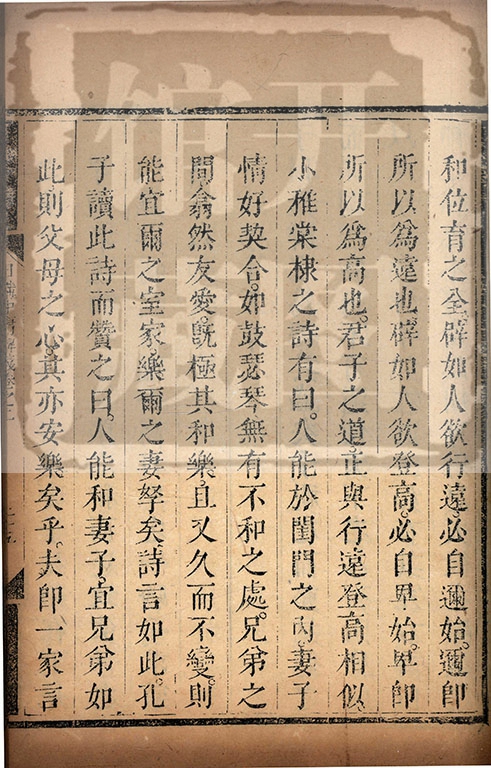 和位育之全辟如人欲行遠必自邇始。邇即
所以為遠也辟如人欲登高。必自卑始。卑即
所以為高也。君子之道正與行遠登高相似。
小雅棠棣之詩有曰。人能於閨門之內。妻子
情好契合。如鼓瑟琴無有不和之處。兄弟之
間。翕然友愛。旣極其和樂。且又久而不變。則
能宜爾之室家。樂爾之妻孥矣詩言如此。孔
子讀此詩而贊之曰。人能和妻子。宜兄弟如
此。則父母之心。其亦安樂矣乎。夫即一家言